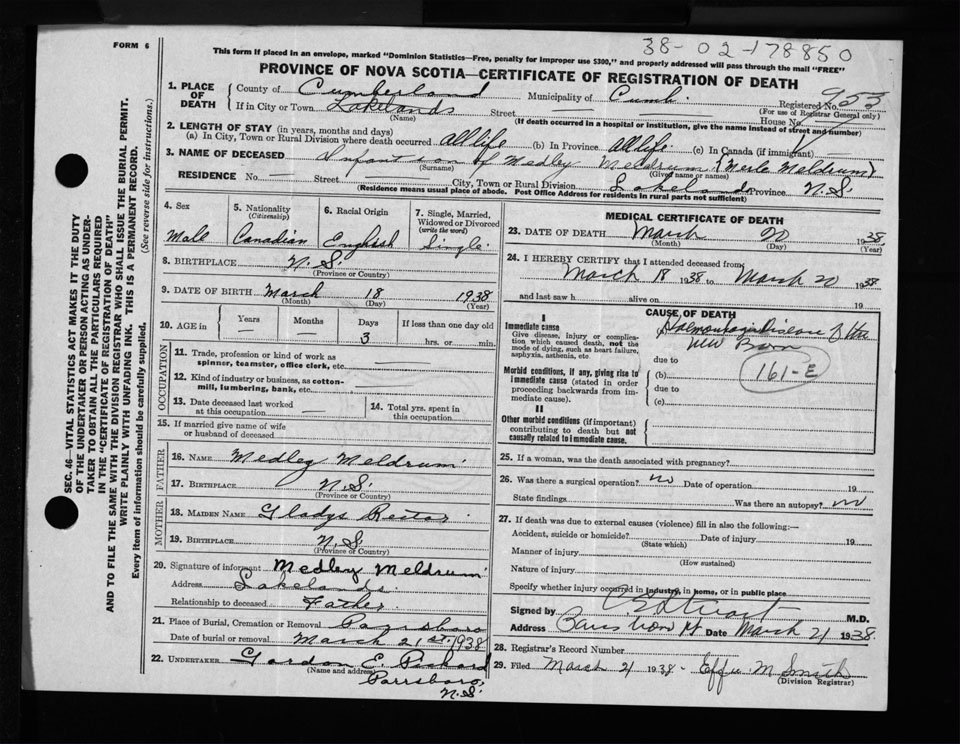 38-02-178850
FORM 6
This form if placed in an envelope, marked "Dominion Statistics—Free, penalty for improper use $300," and properly addressed will pass through the mail "FREE"
PROVINCE OF NOVA SCOTIA—CERTIFICATE OF REGISTRATION OF DEATH
1. PLACE OF DEATH
County of Cumberland Municipality of Cumb. Registered No. 955
(For use of Registrar General only)
If in City or Town Lakelands Street House No.
(Name) (If death occurred in a hospital or institution, give the name instead of street and number)
2. LENGTH OF STAY (in years, months and days)
(a) In City, Town or Rural Division where death occurred All life (b) In Province All life (c) In Canada (if immigrant) —
3. NAME OF DECEASED Infant son of Medley Meldrum (Merle Meldrum)
(Surname) (Given name or names)
RESIDENCE No. — Street City, Town or Rural Division Lakelands Province N.S.
(Residence means usual place of abode. Post Office Address for residents in rural parts not sufficient)
4. Sex
Male
5. Nationality (Citizenship)
Canadian
6. Racial Origin
English
7. Single, Married, Widowed or Divorced (write the word)
Single
8. BIRTHPLACE N.S.
(Province or Country)
9. DATE OF BIRTH March 18 1938
(Month) (Day) (Year)
10. AGE in Years — Months Days 3 If less than one day old hrs. or min.
OCCUPATION
11. Trade, profession or kind of work as spinner, teamster, office clerk, etc.
12. Kind of industry or business, as cotton-mill, lumbering, bank, etc.
13. Date deceased last worked at this occupation —
14. Total yrs. spent in this occupation
15. If married give name of wife or husband of deceased
FATHER
16. NAME Medley Meldrum
17. BIRTHPLACE N.S.
(Province or Country)
MOTHER
18. MAIDEN NAME Gladys Rector
19. BIRTHPLACE N.S.
(Province or Country)
20. Signature of informant Medley Meldrum
Address Lakelands
Relationship to deceased Father
21. Place of Burial, Cremation or Removal Parrsboro
Date of burial or removal March 21st, 1938
22. UNDERTAKER Gordon E. Pickard
(Name and address) Parrsboro, N.S.
MEDICAL CERTIFICATE OF DEATH
23. DATE OF DEATH March 20 1938
(Month) (Day) (Year)
24. I HEREBY CERTIFY that I attended deceased from
March 18 1938 to March 20 1938
and last saw h alive on 19
CAUSE OF DEATH
I
Immediate cause
Give disease, injury or complication which caused death, not the mode of dying, such as heart failure, asphyxia, asthenia, etc.
Disease of the
New Born
due to
161-E
Morbid conditions, if any, giving rise to immediate cause (stated in order proceeding backwards from immediate cause).
(b)
due to
(c)
II
Other morbid conditions (if important) contributing to death but not causally related to immediate cause.
25. If a woman, was the death associated with pregnancy?
26. Was there a surgical operation? no Date of operation 19
State findings Was there an autopsy? no
27. If death was due to external causes (violence) fill in also the following:—
Accident, suicide or homicide? Date of injury 19
(State which)
Manner of injury
(How sustained)
Nature of injury
Specify whether injury occurred in industry, in home, or in public place
Signed by M.D.
Address Date March 21 1938
28. Registrar's Record Number
29. Filed March 21 1938 - Effie M Smith
(Division Registrar)
SEC. 46—VITAL STATISTICS ACT MAKES IT THE DUTY
OF THE UNDERTAKER OR PERSON ACTING AS UNDER-
TAKER TO OBTAIN ALL THE PARTICULARS REQUIRED
IN THE "CERTIFICATE OF REGISTRATION OF DEATH"
AND TO FILE THE SAME WITH THE DIVISION REGISTRAR WHO SHALL ISSUE THE BURIAL PERMIT.
WRITE PLAINLY WITH UNFADING INK. THIS IS A PERMANENT RECORD.
Every item of information should be carefully supplied. (See reverse side for instructions.)